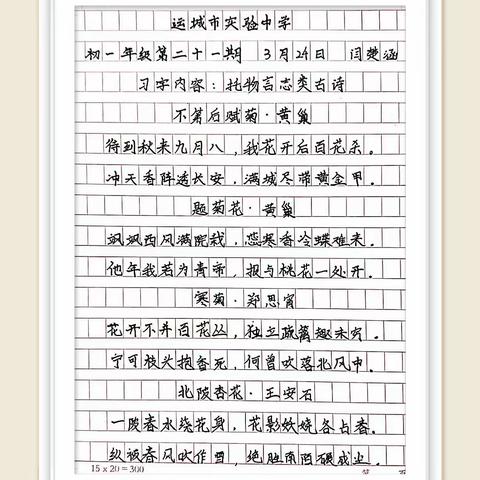 运城市实验中学
初一年级第二十一期 3月24日 闫楚涵
习字内容：托物言志类古诗
不第后赋菊·黄巢
待到秋来九月八，我花开后百花杀。
冲天香阵透长安，满城尽带黄金甲。
题菊花·黄巢
飒飒西风满院栽，蕊寒香冷蝶难来。
他年我若为青帝，报与桃花一处开。
寒菊·郑思肖
花开不并百花丛，独立疏篱趣未穷。
宁可枝头抱香死，何曾吹落北风中。
北陂杏花·王安石
一陂春水绕花身，花影妖娆各占春。
纵被春风吹作雪，绝胜南陌碾成尘。
15×20=300
第 页